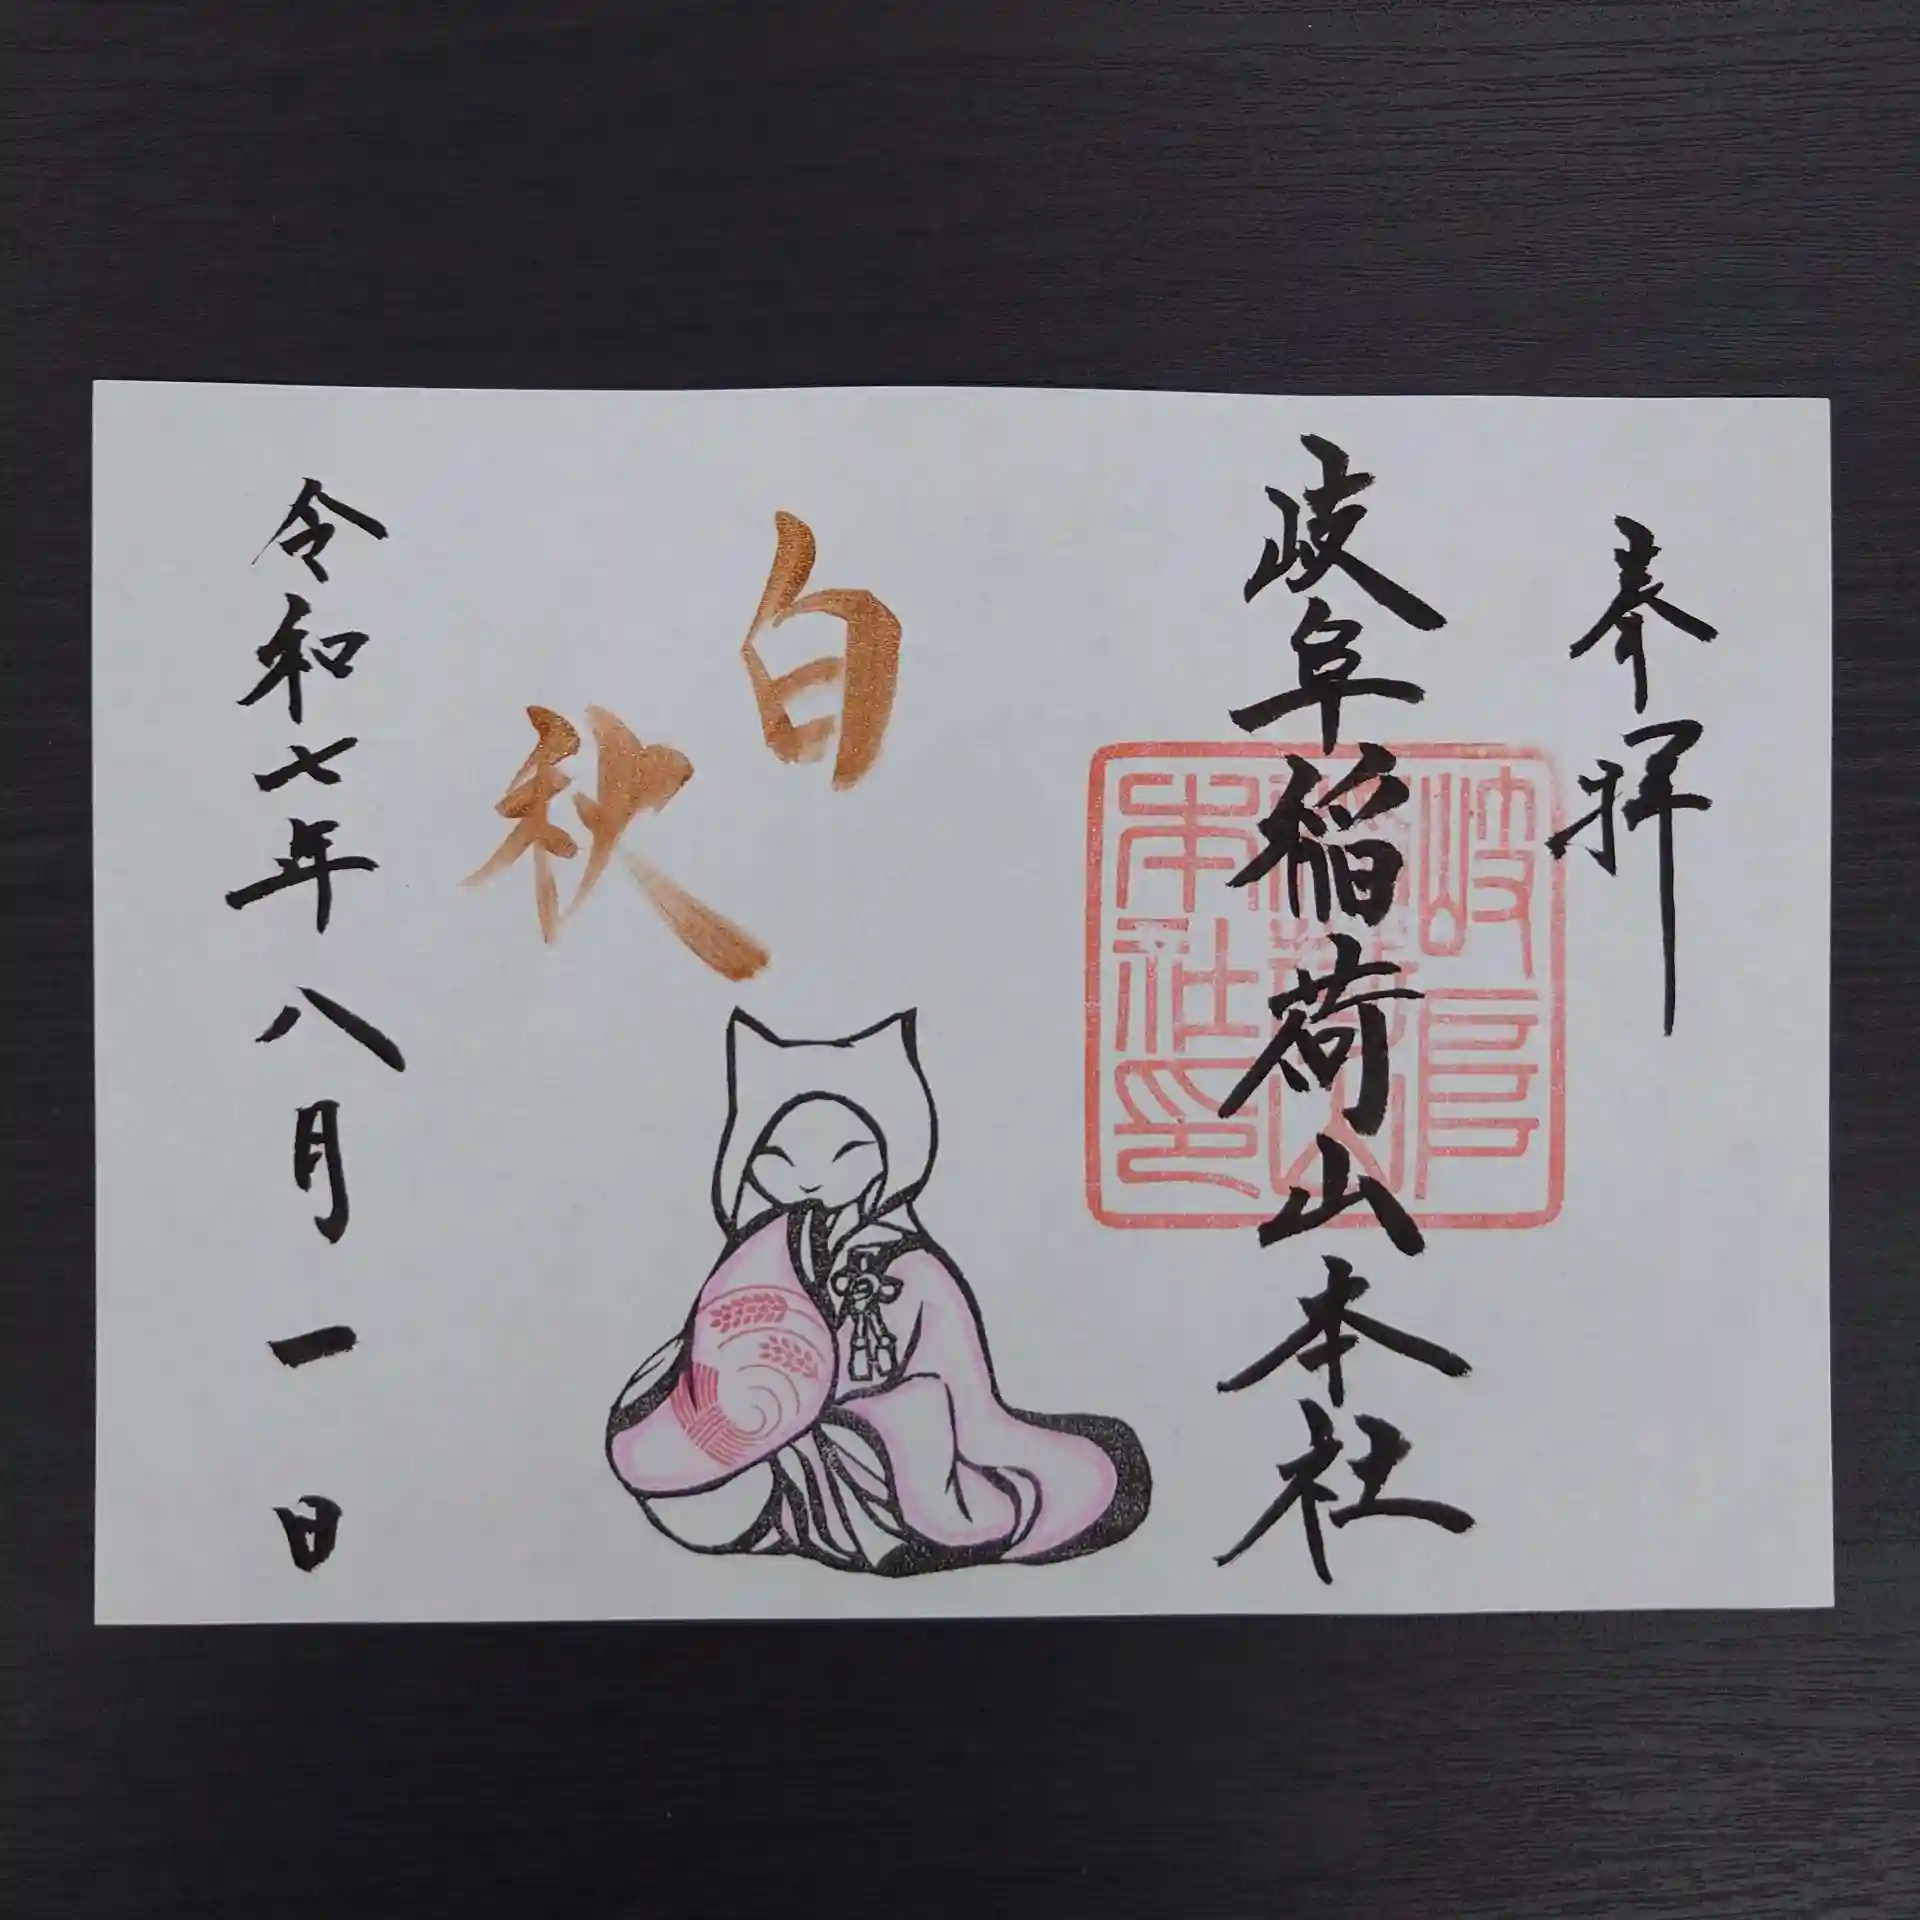 参拝
岐阜稲荷山本社
岐阜稲荷山本社印
白秋
令和七年八月一日